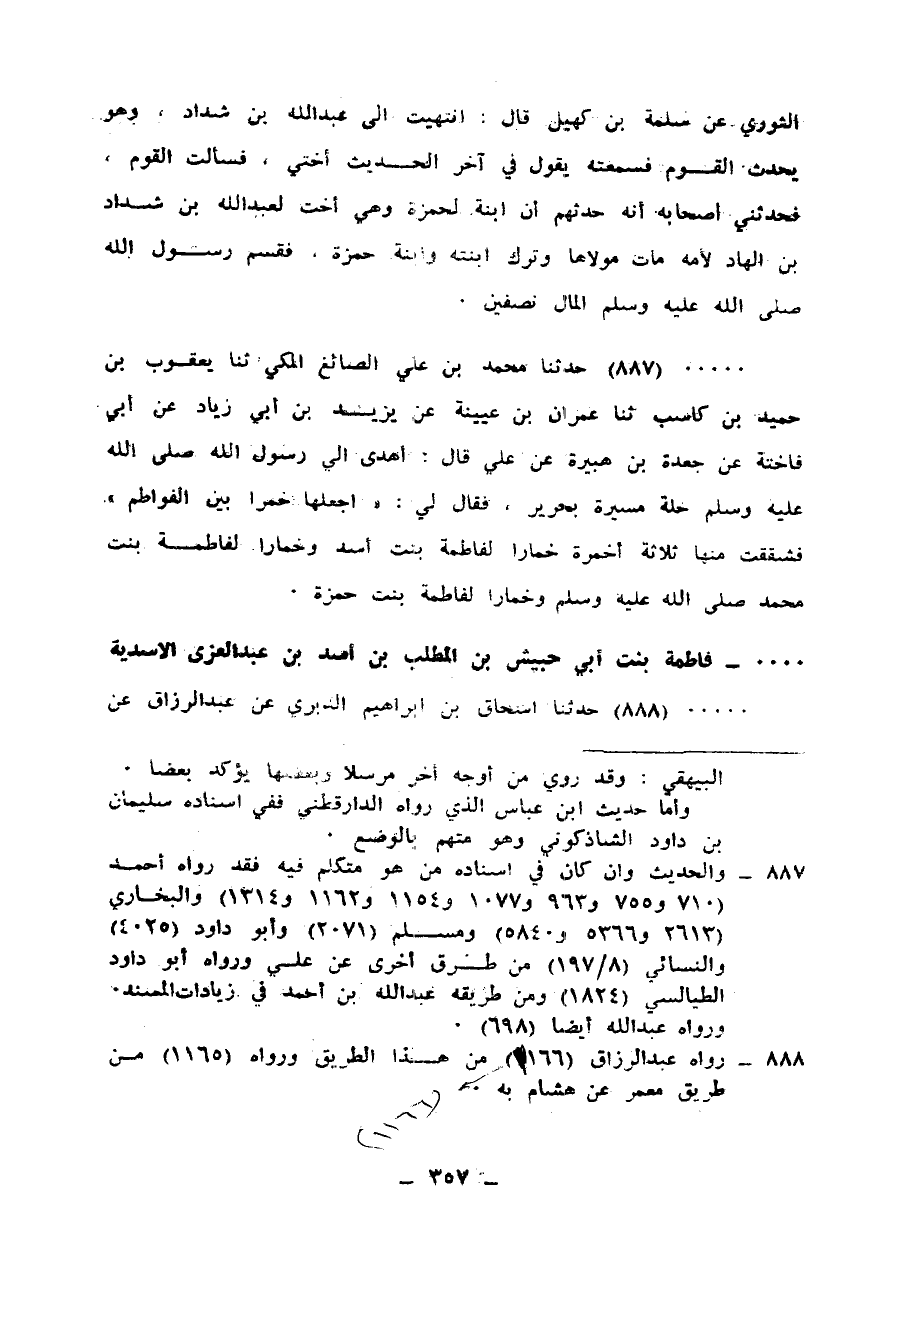 الثوري عن سلمة بن كهيل قال : انتهيت الى عبدالله بن شداد ، وهو
يحدث القـــوم فسمعته يقول في آخر الحـــديث أختي ، فسألت القوم ،
فحدثني أصحابه أنه حدثهم أن ابنة لحمزة وهي أخت لعبدالله بن شـــداد
بن الهاد لأمه مات مولاها وترك ابنته وابنة حمزة ، فقسم رســـول الله
صلى الله عليه وسلم المال نصفين ٠
٠٠٠٠٠ (٨٨٧) حدثنا محمد بن علي الصائغ المكي ثنا يعقـــوب بن
حميد بن كاسب ثنا عمران بن عيينة عن يزيـــد بن أبي زياد عن أبي
فاختة عن جعدة بن هبيرة عن علي قال : أهدى الي رسول الله صلى الله
عليه وسلم حلة مسيرة بحرير ، فقال لي : « اجعلها خمرا بين الفواطم »
فشققت منها ثلاثة أخمرة خمارا لفاطمة بنت أسد وخمارا لفاطمـــة بنت
محمد صلى الله عليه وسلم وخمارا لفاطمة بنت حمزة ٠
٠٠٠٠ ـ فاطمة بنت أبي حبيش بن المطلب بن أسد بن عبدالعزى الاسدية
٠٠٠٠٠ (٨٨٨) حدثنا اسحاق بن ابراهيم الدبري عن عبدالرزاق عن
البيهقي : وقد روي من أوجه أخر مرسلا وبعضها يؤكد بعضا ٠
وأما حديث ابن عباس الذي رواه الدارقطني ففي اسناده سليمان
بن داود الشاذكوني وهو متهم بالوضع ٠
٨٨٧ ـ والحديث وان كان في اسناده من هو متكلم فيه فقد رواه أحمـــد
(٧١٠ و٧٥٥ و٩٦٣ و١٠٧٧ و١١٥٤ و١١٦٢ و١٣١٤) والبخاري
(٢٦١٣ و٥٣٦٦ و٥٨٤٠) ومســـلم (٢٠٧١) وأبو داود (٤٠٢٥)
والنسائي (١٩٧/٨) من طـــرق أخرى عن علـــي ورواه أبو داود
الطيالسي (١٨٢٤) ومن طريقه عبدالله بن أحمد في زيادات المسند٠
ورواه عبدالله أيضا (٦٩٨) ٠
٨٨٨ ـ رواه عبدالرزاق (١١٦٦) من هـــذا الطريق ورواه (١١٦٥) مـــن
طريق معمر عن هشام به ٠
(١١٦٦)
ـ ٣٥٧ ـ